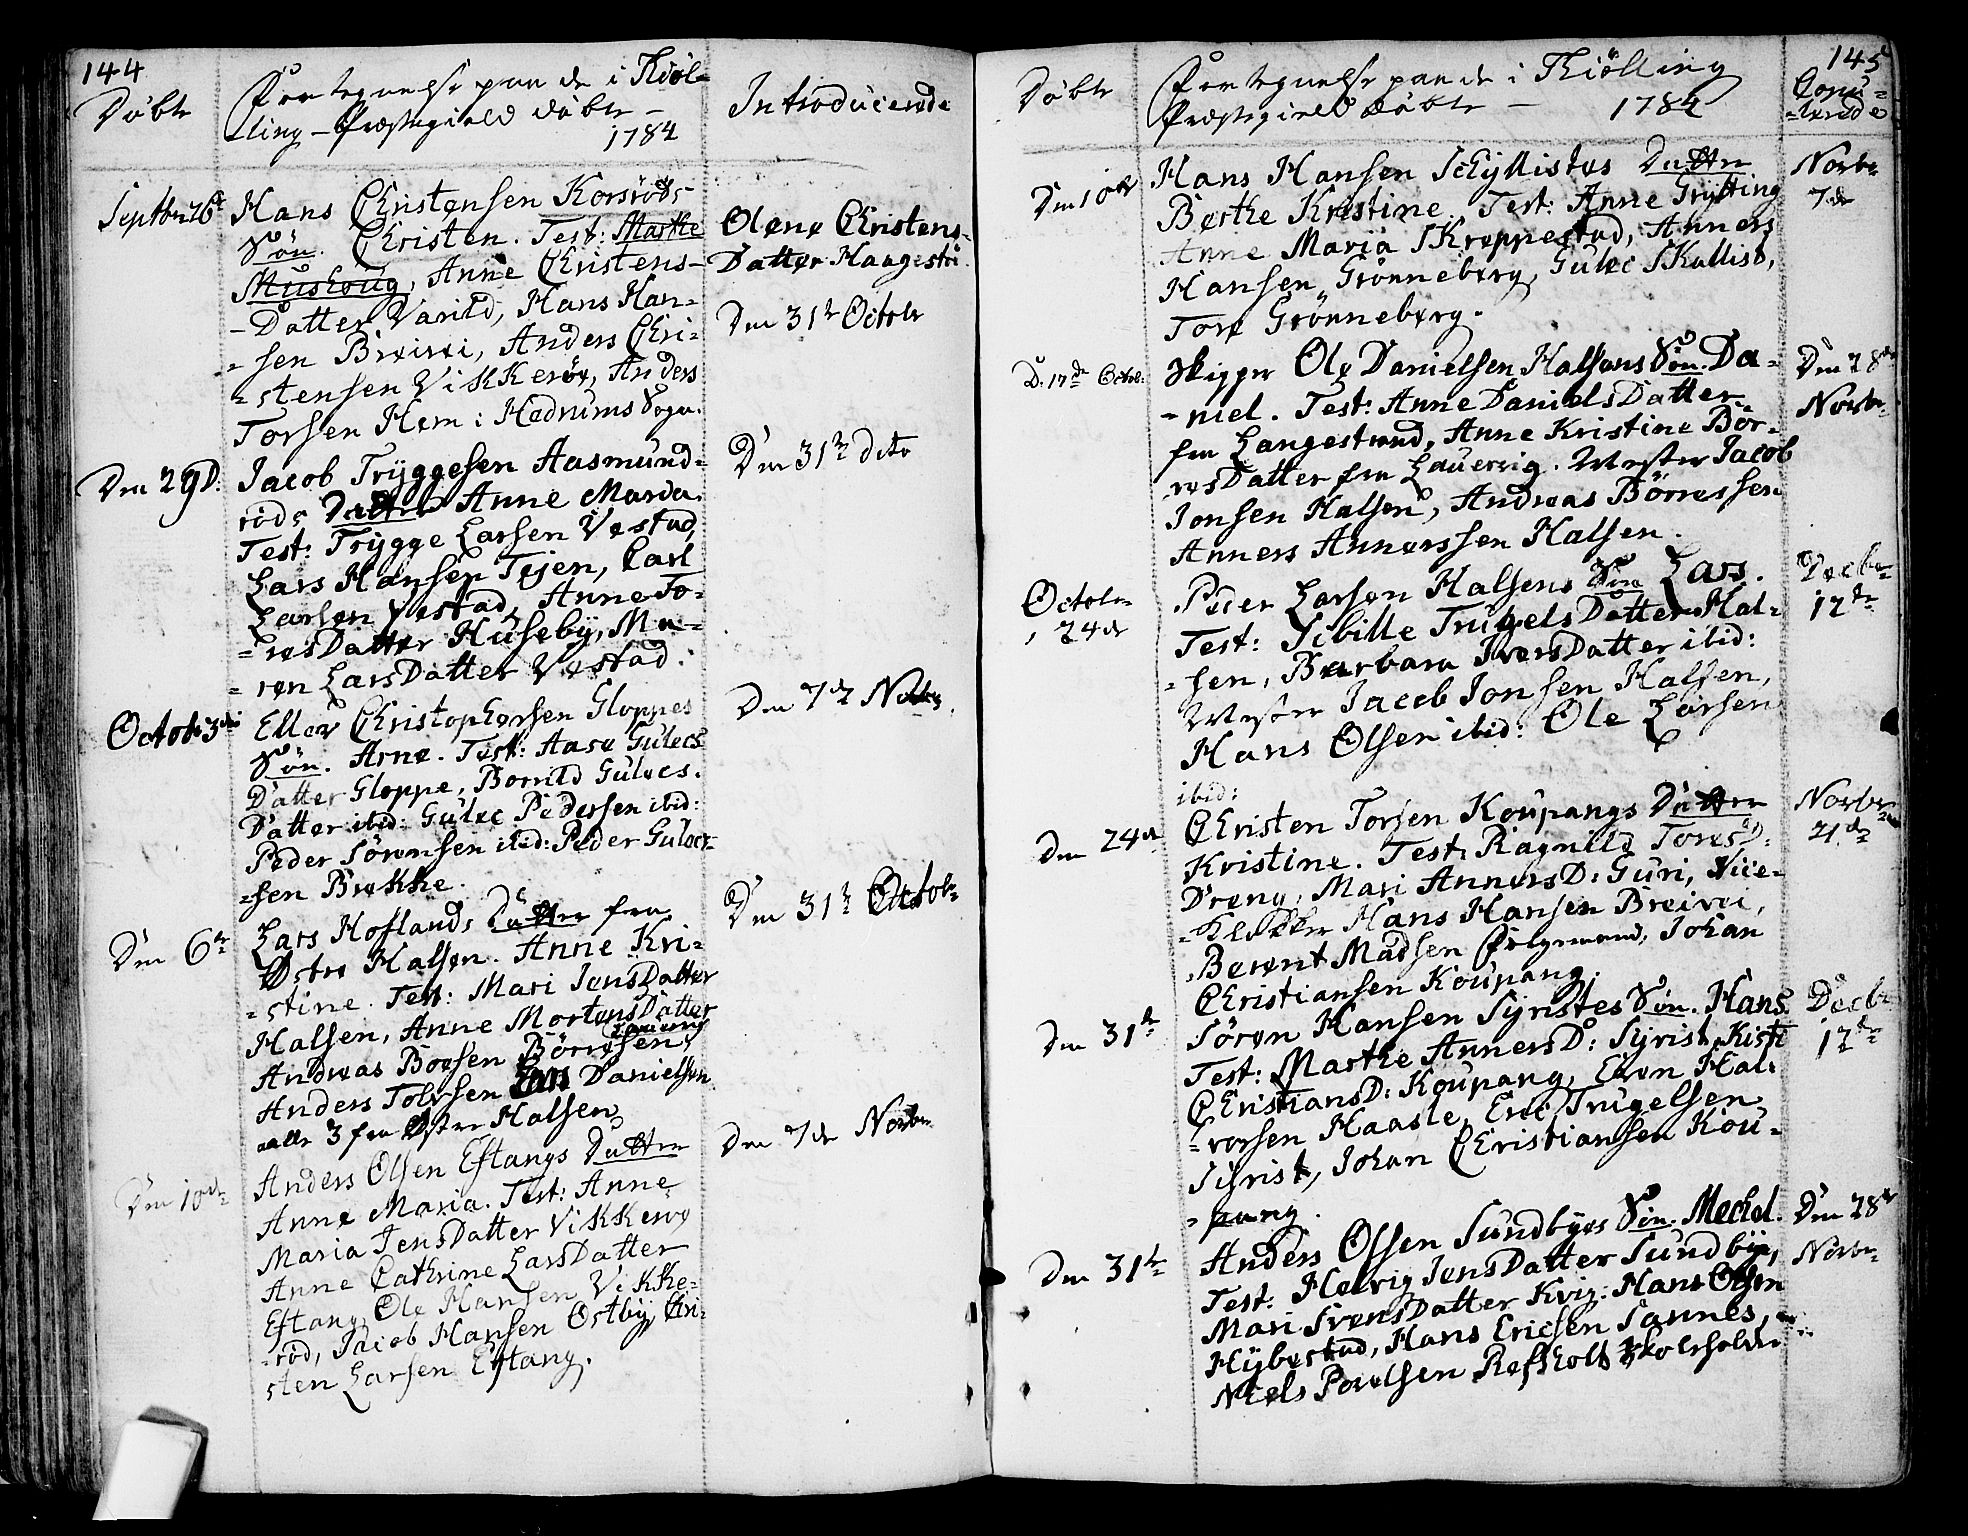 144
Døbte
Fortegnelse paa de i Thiøl-
ling - Præstegield døbte -
1784
Introducerede
Septbr 26t
Hans Christensen Korsrøds
Søn. Christen. Test: Marthe
Mushoug, Anne Christens-
-Datter Varild, Hans Han-
-sen Breivei, Anders Chri-
-stensen Vikkerøe, Anders
Torsen Hem i Hedrums Sogn.
Olene Christens-
Datter Haagestø
Den 31t Octobr
Den 29D.
Jacob Tryggesen Aasmund-
røds Datter Anne Maria.
Test: Trygge Larsen Vestad,
Lars Hansen Tejen, Carl
Larsen Vestad, Anne To-
-resDatter Huseby, Ma-
-ren LarsDatter Vestad.
Den 31t dito
Octobr 3die
Ellev Christophersen Gloppes
Søn. Arne. Test: Aase Gulecs
Datter Gloppe, Borrild Gulecs.
Datter ibid: Gulec Pedersen ibid:
Peder Sørensen ibid: Peder Gulec-
-sen Brekke.
Den 7de Novbr
Den 6te
Lars Hoflands Datter fra
Østre Halsen. Anne Kri-
-stine. Test: Mari JensDatter
Halsen, Anne MortensDatter
Andreas Boesen Børresen,
Anders Tolvsen Danielsen
alle 3 fra Østre Halsen
Den 31t Octobr
Den 10de
Anders Olsen Eftangs Datter
Anne Maria. Test: Anne
Maria JensDatter Vikkerøe
Anne Cathrine LarsDatter
Eftang, Ole Hansen Vikke-
-rød, Jacob Hansen Østby, Chri-
sten Larsen Eftang.
Den 7de Novbr
145
Døbte
Fortegnelse paa de i Thiølling
Præstegield døbte - 1784
Den 10de
Hans Hansen Schyllistes Datter
Berthe Kristine. Test: Anne Gryting
Anne Maria Skreppestad, Anners
Hansen Grønneberg, Gulec Skallist,
Tore Grønneberg.
Novbr
7de
D. 17de Octob:
Skipper Ole Danielsen Halsens Søn. Da-
-niel. Test: Anne DanielsDatter
fra Langestrand, Anne Kristine Bør-
resDatter fra Lauervig. Mester Jacob
Jonsen Halsen, Andreas Børresen
Anners Annersen Halsen.
Den 28de
Novbr
Octobr
24de
Peder Larsen Halsens Søn Lars.
Test: Sibille TrugelsDatter Hal-
-sen, Barbara IversDatter ibid:
Mester Jacob Jonsen Halsen,
Hans Olsen ibid: Ole Larsen
ibid:
Decbr
12de
Den 24de
Christen Torsen Koupangs Datter
Kristine. Test: Ragnild Tores D:
Dreng, Mari AnnersD: Guri, Vice-
-Klokker Hans Hansen Breivei,
Berent Madsen Johan
Christiansen Koupang.
Novbr
21de
Den 31te
Søren Hansen Syristes Søn. Hans
Test: Marthe AnnersD: Syrist, Kisti
ChristiansD: Koupang, Even Hal-
-vorsen Haasle, Eric Trugelsen
Syrist, Johan Christiansen Kou-
-pang.
Decbr
12de
Den 31te
Anders Olsen Sundbyes Søn. Mechel.
Test: Helvig JensDatter Sundbye,
Mari SvensDatter Kvig: Hans Olsen
Hybestad, Hans Ericsen Sannes,
Niels Povelsen Refsholt Skoleholder
Den 28de
Novbr